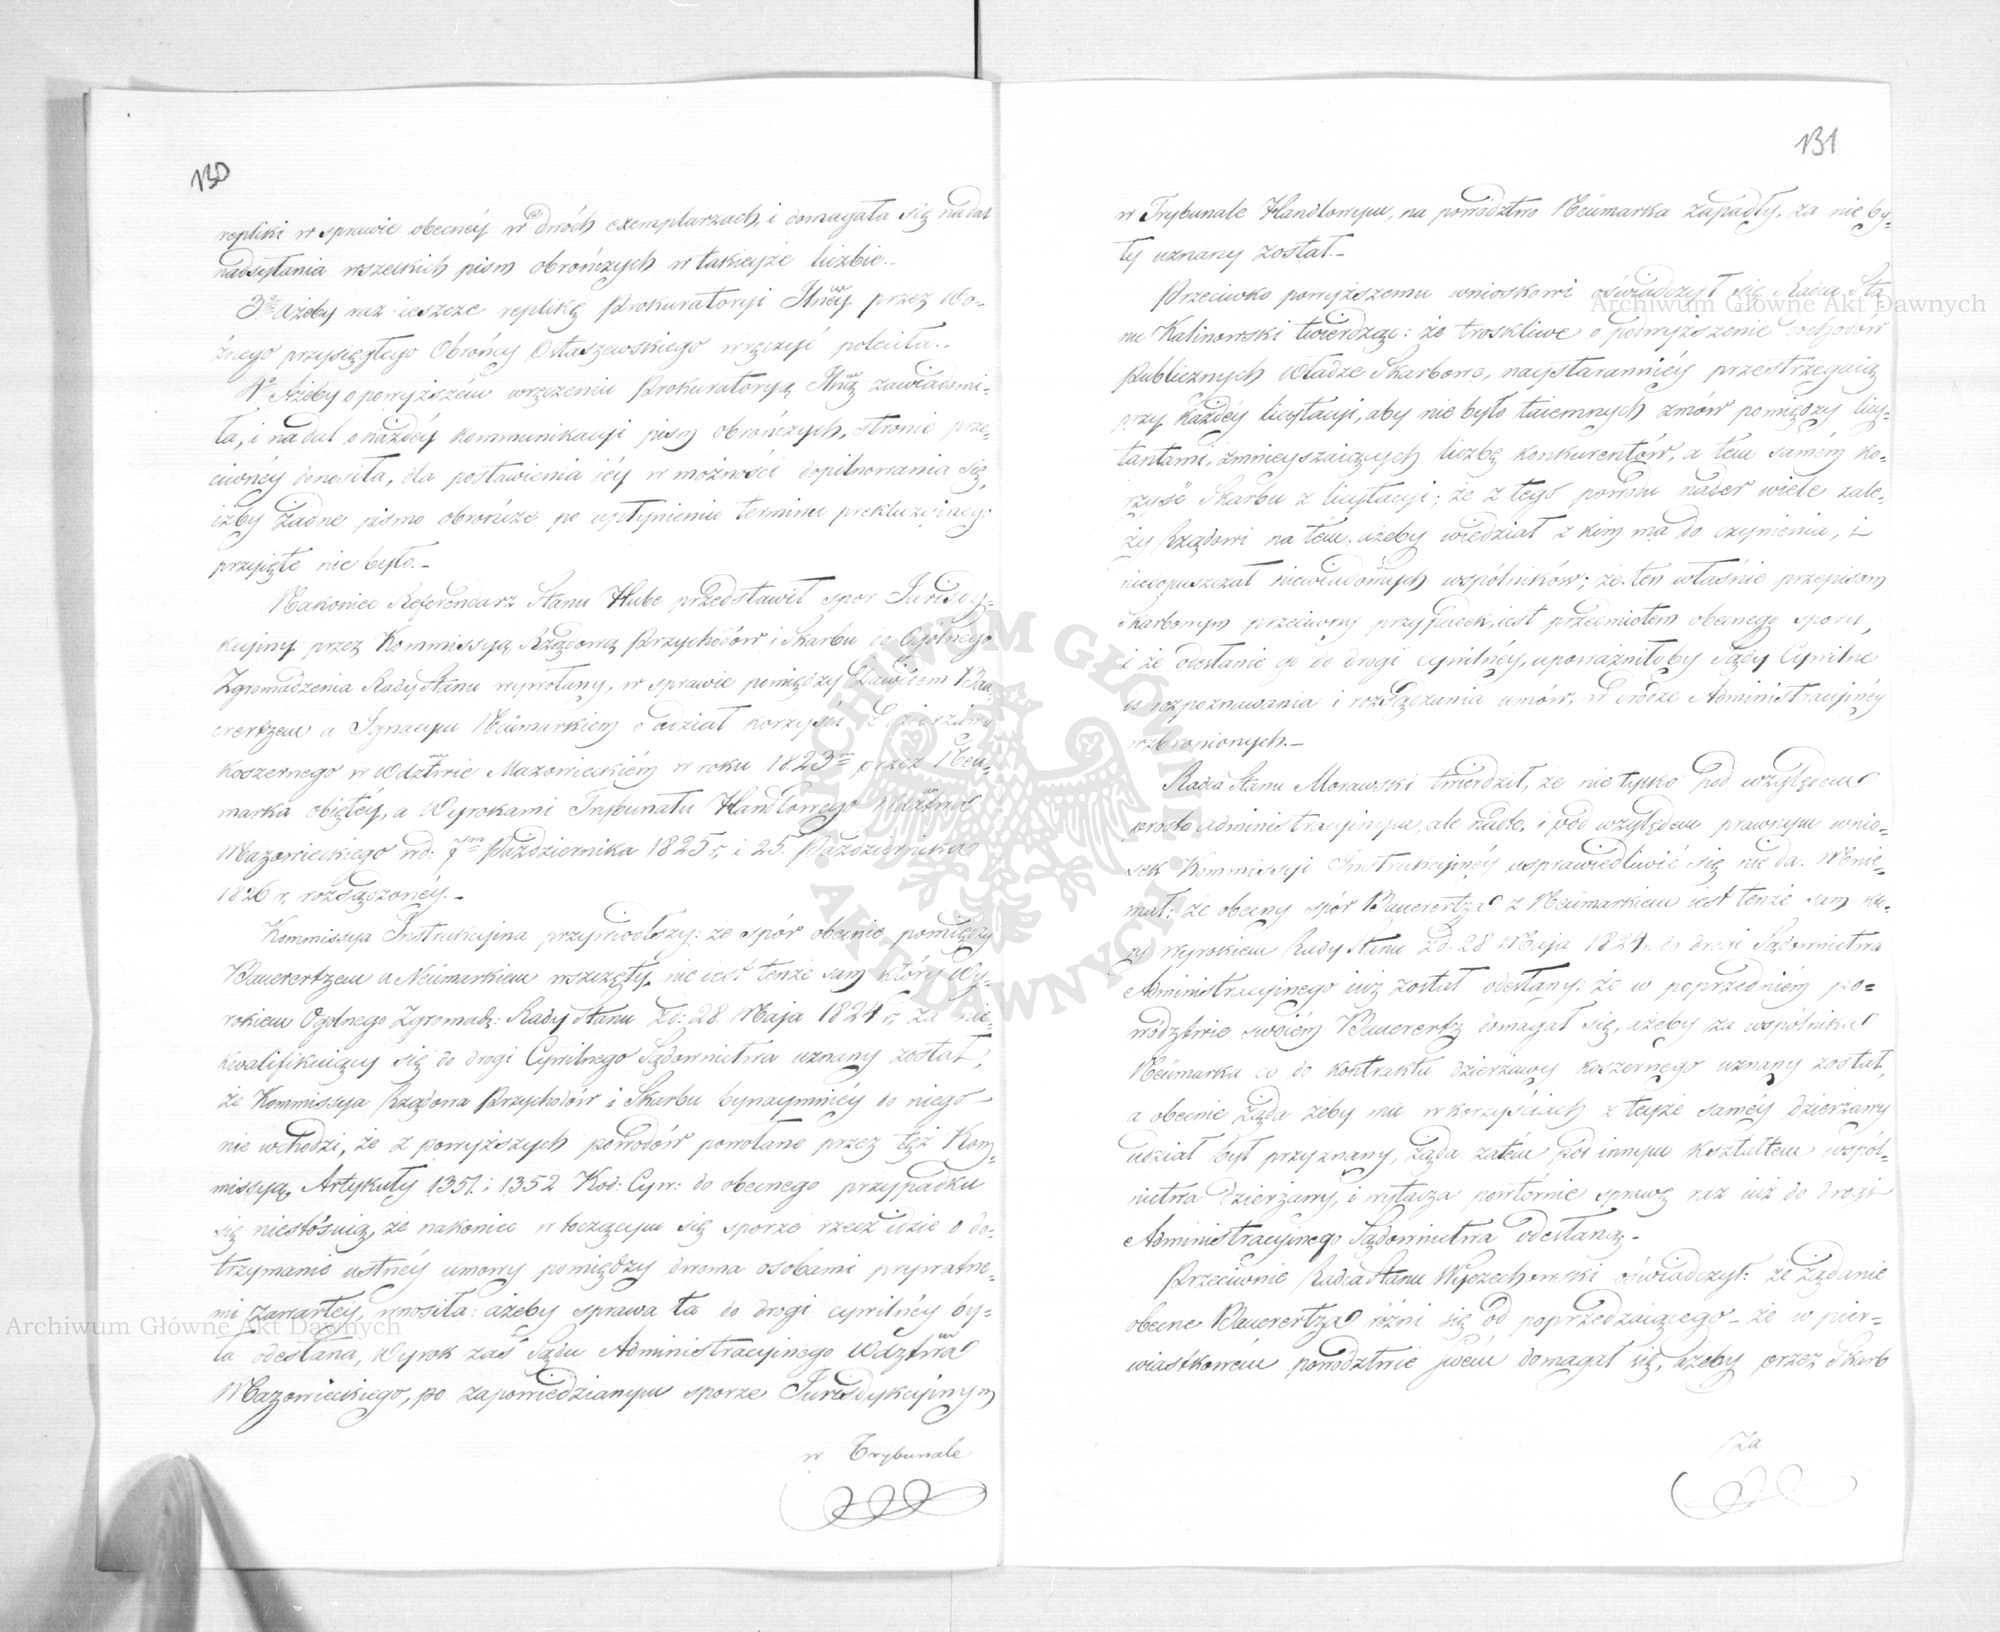 130
repliki w sprawie obecnéy w dwóch exemplarzach, i domagała się nadal
nadsyłania wszelkich pism obrończych w takieyże liczbie.-
3o Ażeby raz ieszcze replikę Prokuratoryi Jlnéy przez Wo-
źnego przysięgłego Obrońcy Ostaszewskiego wręczyć poleciła.-
4o Ażeby o powyższém wręczeniu Prokuratoryą Jlną zawiadomi-
ła, i nadal o każdéy kommunikacyi pism obrończych, stronie prze-
ciwnéy donosiła, dla postawienia iéy w możności dopilnowania się,
iżby żadne pismo obrończe po upłynieniu terminu prekluzyinego
przyięte nie było.-
Nakoniec Referendarz Stanu Hube przedstawił spor Jurisdy-
kcyiny przez Kommissyą Rządową Przychodów i Skarbu do Ogólnego
Zgromadzenia Rady Stanu wywołany, w sprawie pomiędzy Dawidem Bau-
erertzem a Ignacym Neümarkiem o udział korzyści z dzierżawy
koszernego w Wdztwie Mazowieckiém w roku 1823m przez Neu-
marka obiętéy, a Wyrokami Trybunału Handlowego Wdztwa
Mazowieckiego wd: 7m Października 1825 r, i 25. Października
1826 r, rozsądzonéy.-
Kommissya Instrukcyina przywiodłszy: że spór obecnie pomiędzy
Bauerertzem a Neümarkiem wszczęty, nie iest tenże sam który Wy-
rokiem Ogólnego Zgromadz: Rady Stanu zd: 28 Maja 1824 r, za nie-
kwalifikuiący się do drogi Cywilnego Sądownictwa uznany został,
że Kommissya Rządowa Przychodów i Skarbu bynaymniéy do niego
nie wchodzi, że z powyższych powodów powołane przez też Kom-
missyą, Artykuły 1351. i 1352 Kod: Cyw: do obecnego przypadku
się niestósuią, że nakoniec w toczącym się sporze rzecz idzie o do-
trzymanie ustnéy umowy pomiędzy dwoma osobami prywatne-
mi zawartéy, wnosiła: ażeby sprawa ta do drogi cywilnéy by-
ła odesłana, Wyrok zaś Sądu Administracyinego Wdztwa
Mazowieckiego, po zapowiedzianym sporze Jurisdykcyinym
w Trybunale
131
w Trybunale Handlowym, na powództwo Neümarka zapadły, za nie by-
ły uznany został.-
Przeciwko powyższemu wnioskowi oświadczył się Radca Sta-
nu Kalinowski twierdząc: że troskliwe o podwyższenie dochodów
Publicznych Władze Skarbowe, naystaranniéy przestrzegaią
przy każdéy licytacyi, aby nie było taiemnych zmów pomiędzy licy-
tantami, zmnieyszaiących liczbę konkurentów, a tem samém ko-
rzyść Skarbu z licytacyi; że z tego powodu nader wiele zale-
ży Rządowi na tem, ażeby wiedział z kim ma do czynienia, i
niedopuszczał niewiadomych wspólników; że ten właśnie przepisom
Skarbowym przeciwny przypadek, iest przedmiotem obecnego sporu,
i że odesłanie go do drogi cywilnéy, upoważniłoby Sądy Cywilne
do rozpoznawania i rozsądzania umów, w drodze Administracyinéy
wzbronionych.-
Radca Stanu Morawski twierdził, że nie tylko pod względem
prosto administracyinym, ale nadto, i pod względem prawnym wnio-
sek Kommissyi Instrukcyinéy usprawiedliwić się nie da. Mnie-
mał: że obecny spór Bauerertza z Neümarkiem iest tenże sam któ-
ry wyrokiem Rady Stanu zd. 28 Maja 1824 do drogi Sądownictwa
Administracyinego iuż został odesłany; że w poprzedniém po-
wództwie swoiém Bauerertz domagał się, ażeby za wspólnika
Neümarka co do kontraktu dzierżawy koszernego uznany został,
a obecnie żąda żeby mu w korzyściach z teyże saméy dzierżawy
udział był przyznany, żąda zatém pod innym kształtem wspól-
nictwa dzierżawy, i wytacza powtórnie sprawę raz iuż do drogi
Administracyinego Sądownictwa odesłaną.-
Przeciwnie Radca Stanu Wyczechowski oświadczył: że żądanie
obecne Bauerertza różni się od poprzedzaiącego - że w pier-
wiastkowém powództwie swém domagał się, ażeby przez Skarb
za
Archiwum Główne Akt Dawnych
Archiwum Główne Akt Dawnych
ARCHIWUM GŁÓWNE AKT DAWNYCH